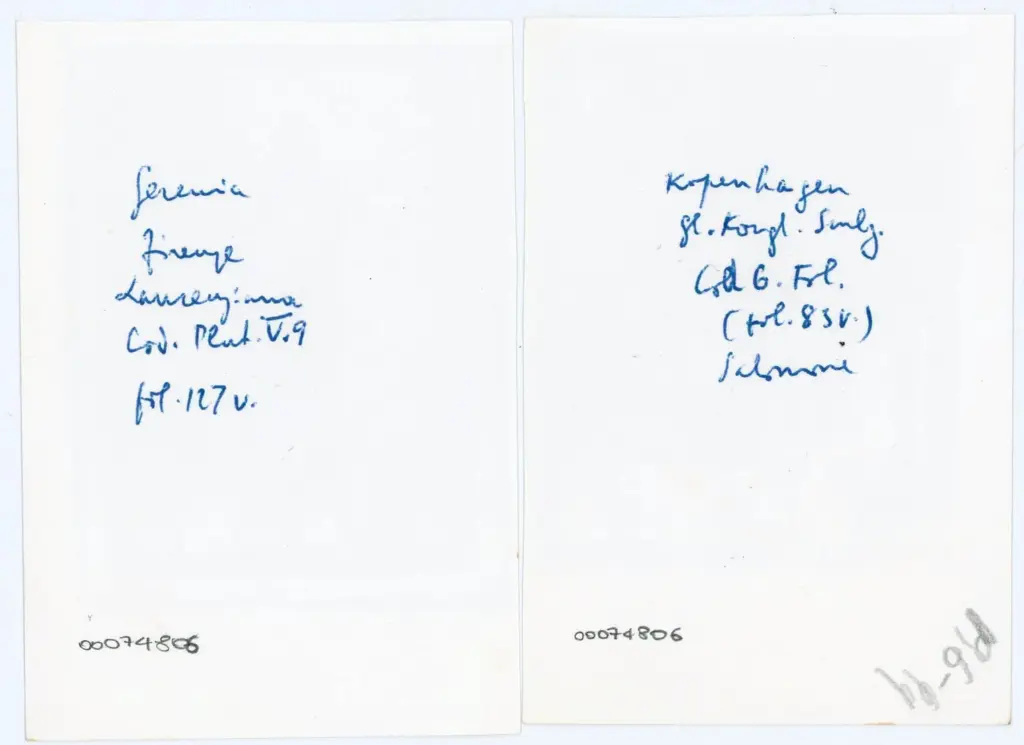 Geremia
Firenze
Laurenziana
Cod. Plut. V.9
fol. 127 v.
00074806
Kopenhagen
gl. Kongl. Smlg.
Cod 6. Fol.
(fol. 83v.)
Salomone
00074806